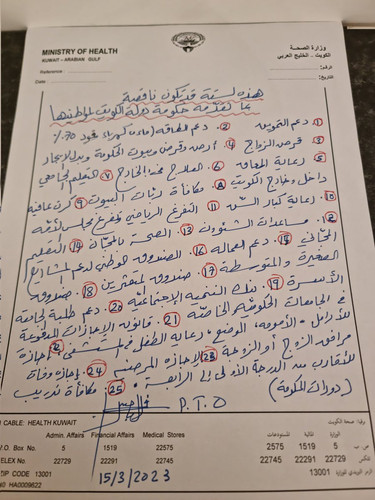 MINISTRY OF HEALTH
KUWAIT - ARABIAN GULF
وزارة الصحة
الكويت - الخليج العربي
Reference
الرقم
Date
التاريخ
هذه لستة قد يكون ناقصة
بما تقدمة حكومة دولة الكويت لمواطنيها
① دعم التموين ② دعم الطاقة (ماء، كهرباء، وقود 70٪)
③ قرض الزواج ④ أرض وقرض وبيوت الحكومة وبدل الإيجار
⑤ رعاية المعاق ⑥ العلاج محنة الخارج ⑦ التعليم الجامعي
داخل وخارج الكويت ⑧ مكافأة ربات البيوت ⑨ كرت عافية
⑩ رعاية كبار السن ⑪ التفرغ الرياضي وتفرغ مجلس الأمة
⑫ مساعدات الشئون ⑬ الصحة بالمجان ⑭ التعليم
المجاني ⑮ دعم العماله ⑯ الصندوق الوطني لدعم المشاريع
الصغيرة والمتوسطة ⑰ صندوق المتعثرين ⑱ صندوق
الأسرة ⑲ بنك التنمية الاجتماعية ⑳ دعم طلبة الجامعة
في الجامعات الحكومية والخاصة ㉑ قانون الإجازات المدفوعة
للأرامل - الأمومه، الوضع، رعاية الطفل في مستشفى ㉒ إجازة
مرافق الزوج أو الزوجة ㉓ الإجازه المرضيه ㉔ إجازة وفاة
للأقارب من الدرجة الأولى إلى الرابعة ㉕ مكافأة تدريب
(دورات الحكومة)
P.T.O
CABLE: HEALTH KUWAIT
برقيا: صحة الكويت
Admin. Affairs Financial Affairs Medical Stores
المستودعات مالية الوزارة
P.O. Box No. 5 1519 2575
2575 1519 5
TELEX No. 22729 22291 22745
22745 22291 22729
ZIP CODE 13001
13001 الرمز البريدي
HA0009622
15/3/2023